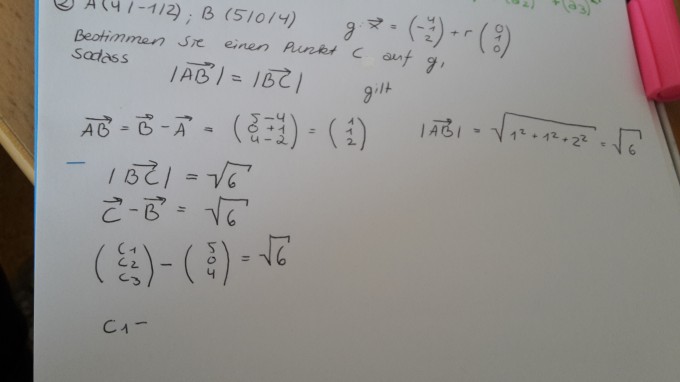 ② A(4/-1/2) ; B (5/0/4) g: x⃗ = (-4 1 2) + r (0 1 0)
Bestimmen Sie einen Punkt C auf g,
Sodass
|AB⃗| = |BC⃗| gilt
AB⃗ = B⃗ - A⃗ = (5-4 0+1 4-2) = (1 1 2) |AB⃗| = √1²+1²+2² = √6
|BC⃗| = √6
C⃗ - B⃗ = √6
(C1 C2 C3) - (5 0 4) = √6
C1 -